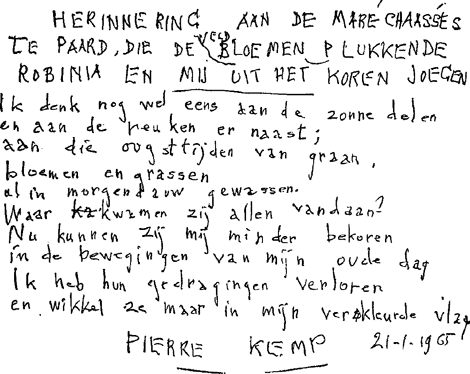 HERINNERING AAN DE MARÉCHAUSSÉS
TE PAARD, DIE DE VELD BLOEMEN PLUKKENDE
ROBINIA EN MIJ UIT HET KOREN JOEGEN
Ik denk nog wel eens aan de zonne delen
en aan de reuken er naast;
aan die oogsttijden van graan,
bloemen en grassen
al in morgendauw gewassen.
Waar kwamen zij allen vandaan?
Nu kunnen zij mij minder bekoren
in de bewegingen van mijn oude dag
Ik heb hun gedragingen verloren
en wikkel ze maar in mijn verkleurde vlag
PIERRE KEMP 21-1-1965